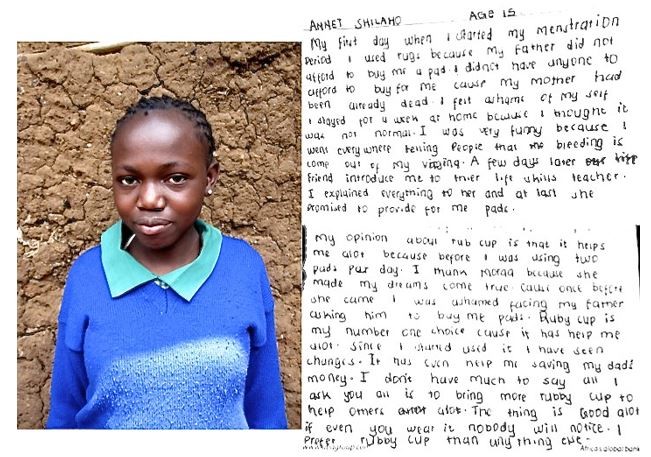 ANNET SHILAHO AGE 15
My first day when I started my menstration
period I used rugs because my father did not
afford to buy me a pad. I didnot have anyone to
afford to buy for me cause my mother had
been already dead. I felt ashame of my self
I stayed for a week at home because I thought it
was not normal. I was very funny because I
went everywhere telling people that bleeding is
come out of my virging. A few days later
friend introduce me to trier life skills teacher.
I explained everything to her and at last she
promised to provide for me pads.
My opinion about rub cup is that it helps
me alot because before I was using two
pads par day. I thank moraa because she
made my dreams come true. Cause once before
she came I was ashamed facing my father
asking him to buy me pads. Ruby cup is
my number one choice cause it has help me
alot. Since I started used it I have seen
changes. It has even help me saving my dads
money. I don't have much to say all I
ask you all is to bring more rubby cup to
help others alot. The thing is Good alot
if even you wear it nobody will notice. I
Prefer rubby cup than anything else.
Africasglobalbank